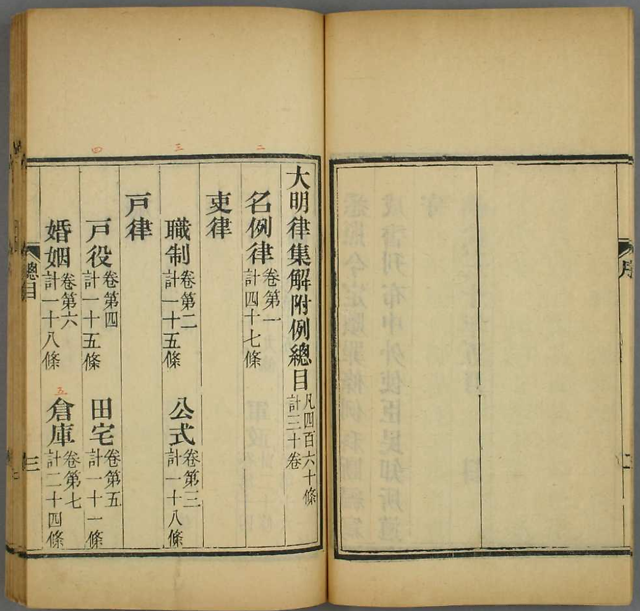 序
二
大明律集解附例總目 凡四百六十條 計三十卷
二
名例律 卷第一 計四十七條
吏律
三
職制 卷第二 計一十五條 公式 卷第三 計一十八條
戸律
四
戸役 卷第四 計一十五條 田宅 卷第五 計一十一條
婚姻 卷第六 計一十八條 五 倉庫 卷第七 計二十四條
總目
三